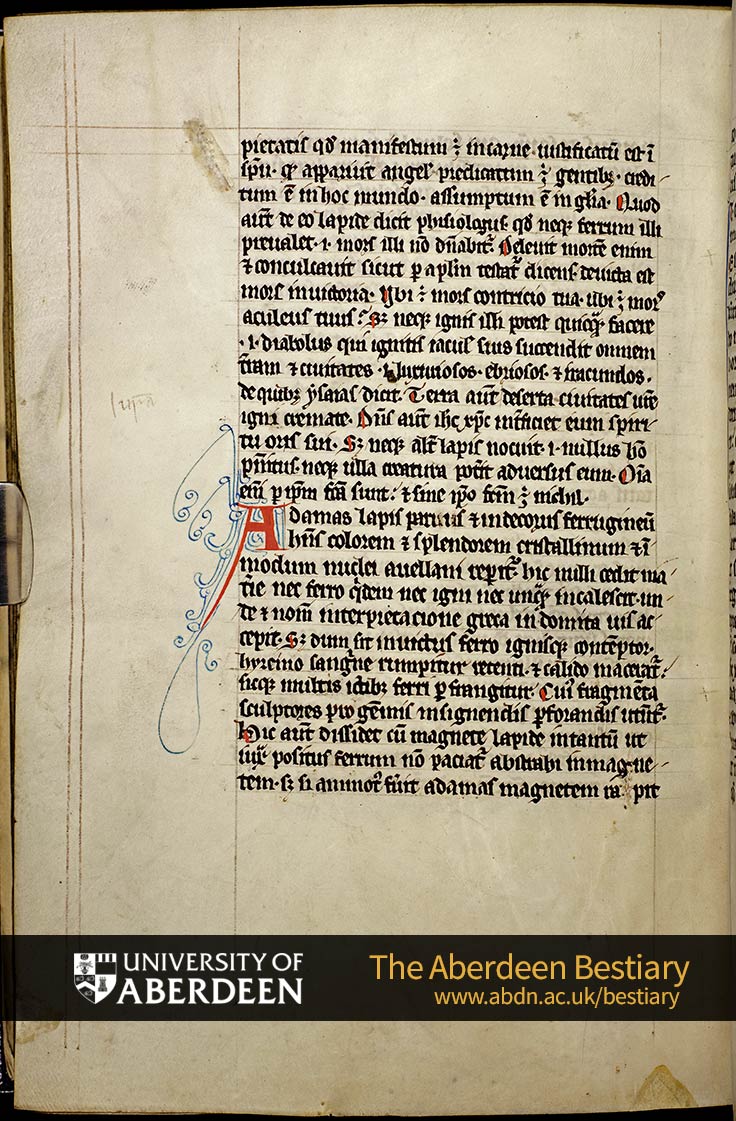 pietatis qđ manifestum ÷ in carne· iustificatū est ī
spū· qđ apparuit angel' predicatum ÷ gentibꝫ· credi
tum ē in hoc mundo· assumptum ē in glīa· Quod
aūt de eo lapide dicit phisiologus· qđ neqꝫ ferrum illi
preualet· i· mors illi nō dn̄abit᷑· Deleuit mortē enim
⁊ conculcauit sicut ꝑ apl̄m testat᷑ dicens deuicta est
mors in uictoria· Vbi ÷ mors contricio tua· ubi ÷ mors
aculeus tuus? Sꝫ neqꝫ ignis illi potest quicqꝫ facere
·i· diabolus qui ignitis iacul' suis succendit omnem
t̄ram ⁊ ciuitates· luxuriosos· ebriosos· ⁊ iracundos·
de quibꝫ ysaias dicit· Terra aūt deserta ciuitates ur̄e
igni cremate· Dn̄s aūt ihc xp̄c int̄ficiet eum spiri
tu oris sui· Sꝫ neqꝫ alt̄ lapis nocuit· i· nullus hō
pn̄itus· neqꝫ ulla creatura pot̄it aduersus eum· Om̄ia
em̄ ꝑ ip̄m fc̄a sunt· ⁊ sine ip̄o fc̄m ÷ nichil·
Adamas lapis paruus ⁊ indecorus ferrugineū
hn̄s colorem ⁊ splendorem cristallinum ⁊ ī
modum nuclei auellani reperit᷑· hic nulli cedit ma
t̄ie nec ferro q̇dem nec igni nec unqꝫ incalescit· un
de ⁊ nom̄ interpretacione greca indomita uis ac
cepit· Sꝫ dum sit inuictus ferro ignisqꝫ contēptor·
hyrcino sangn̄e rumpitur recenti· ⁊ calido macerat᷑·
sicqꝫ multis ictibꝫ ferri ꝑfrangitur· Cui' fragmēta
sculptores pro gēmis insignendis ꝑforandis utūt᷑·
Hic aūt dissidet cū magnete lapide in tantū ut
iux̄ positus ferrum nō paciat᷑ abstrahi in magne
tem· sꝫ si ammot' fūit adamas magnetem ra pit
supra
UNIVERSITY OF
ABERDEEN
The Aberdeen Bestiary
www.abdn.ac.uk/bestiary